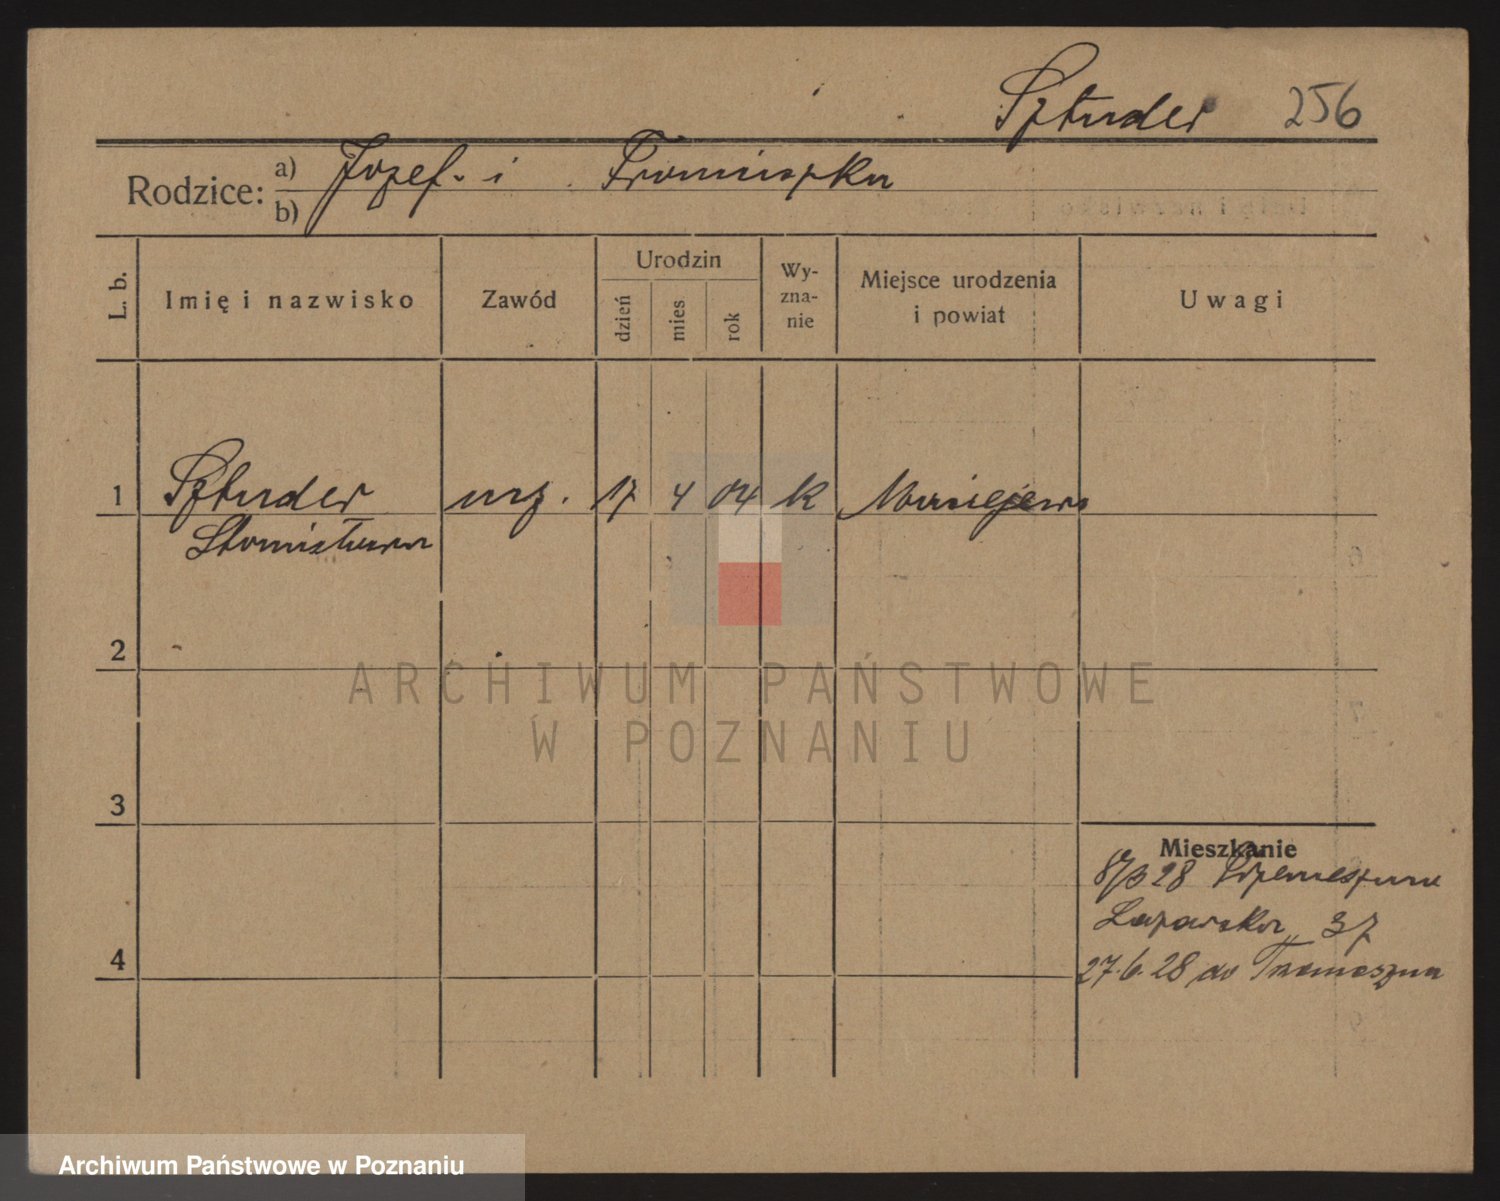 Sztuder 256
Rodzice: a) Józef i Franciszka
b)
L. b.
Imię i nazwisko
Zawód
Urodzin
dzień
mies
rok
Wy-
zna-
nie
Miejsce urodzenia
i powiat
Uwagi
1 Sztuder urz. 17 4 04 k
Stanisława
2
3
4
Mieszkanie
28
Łazarska
27.6.28 do
ARCHIWUM PAŃSTWOWE
W POZNANIU
Archiwum Państwowe w Poznaniu